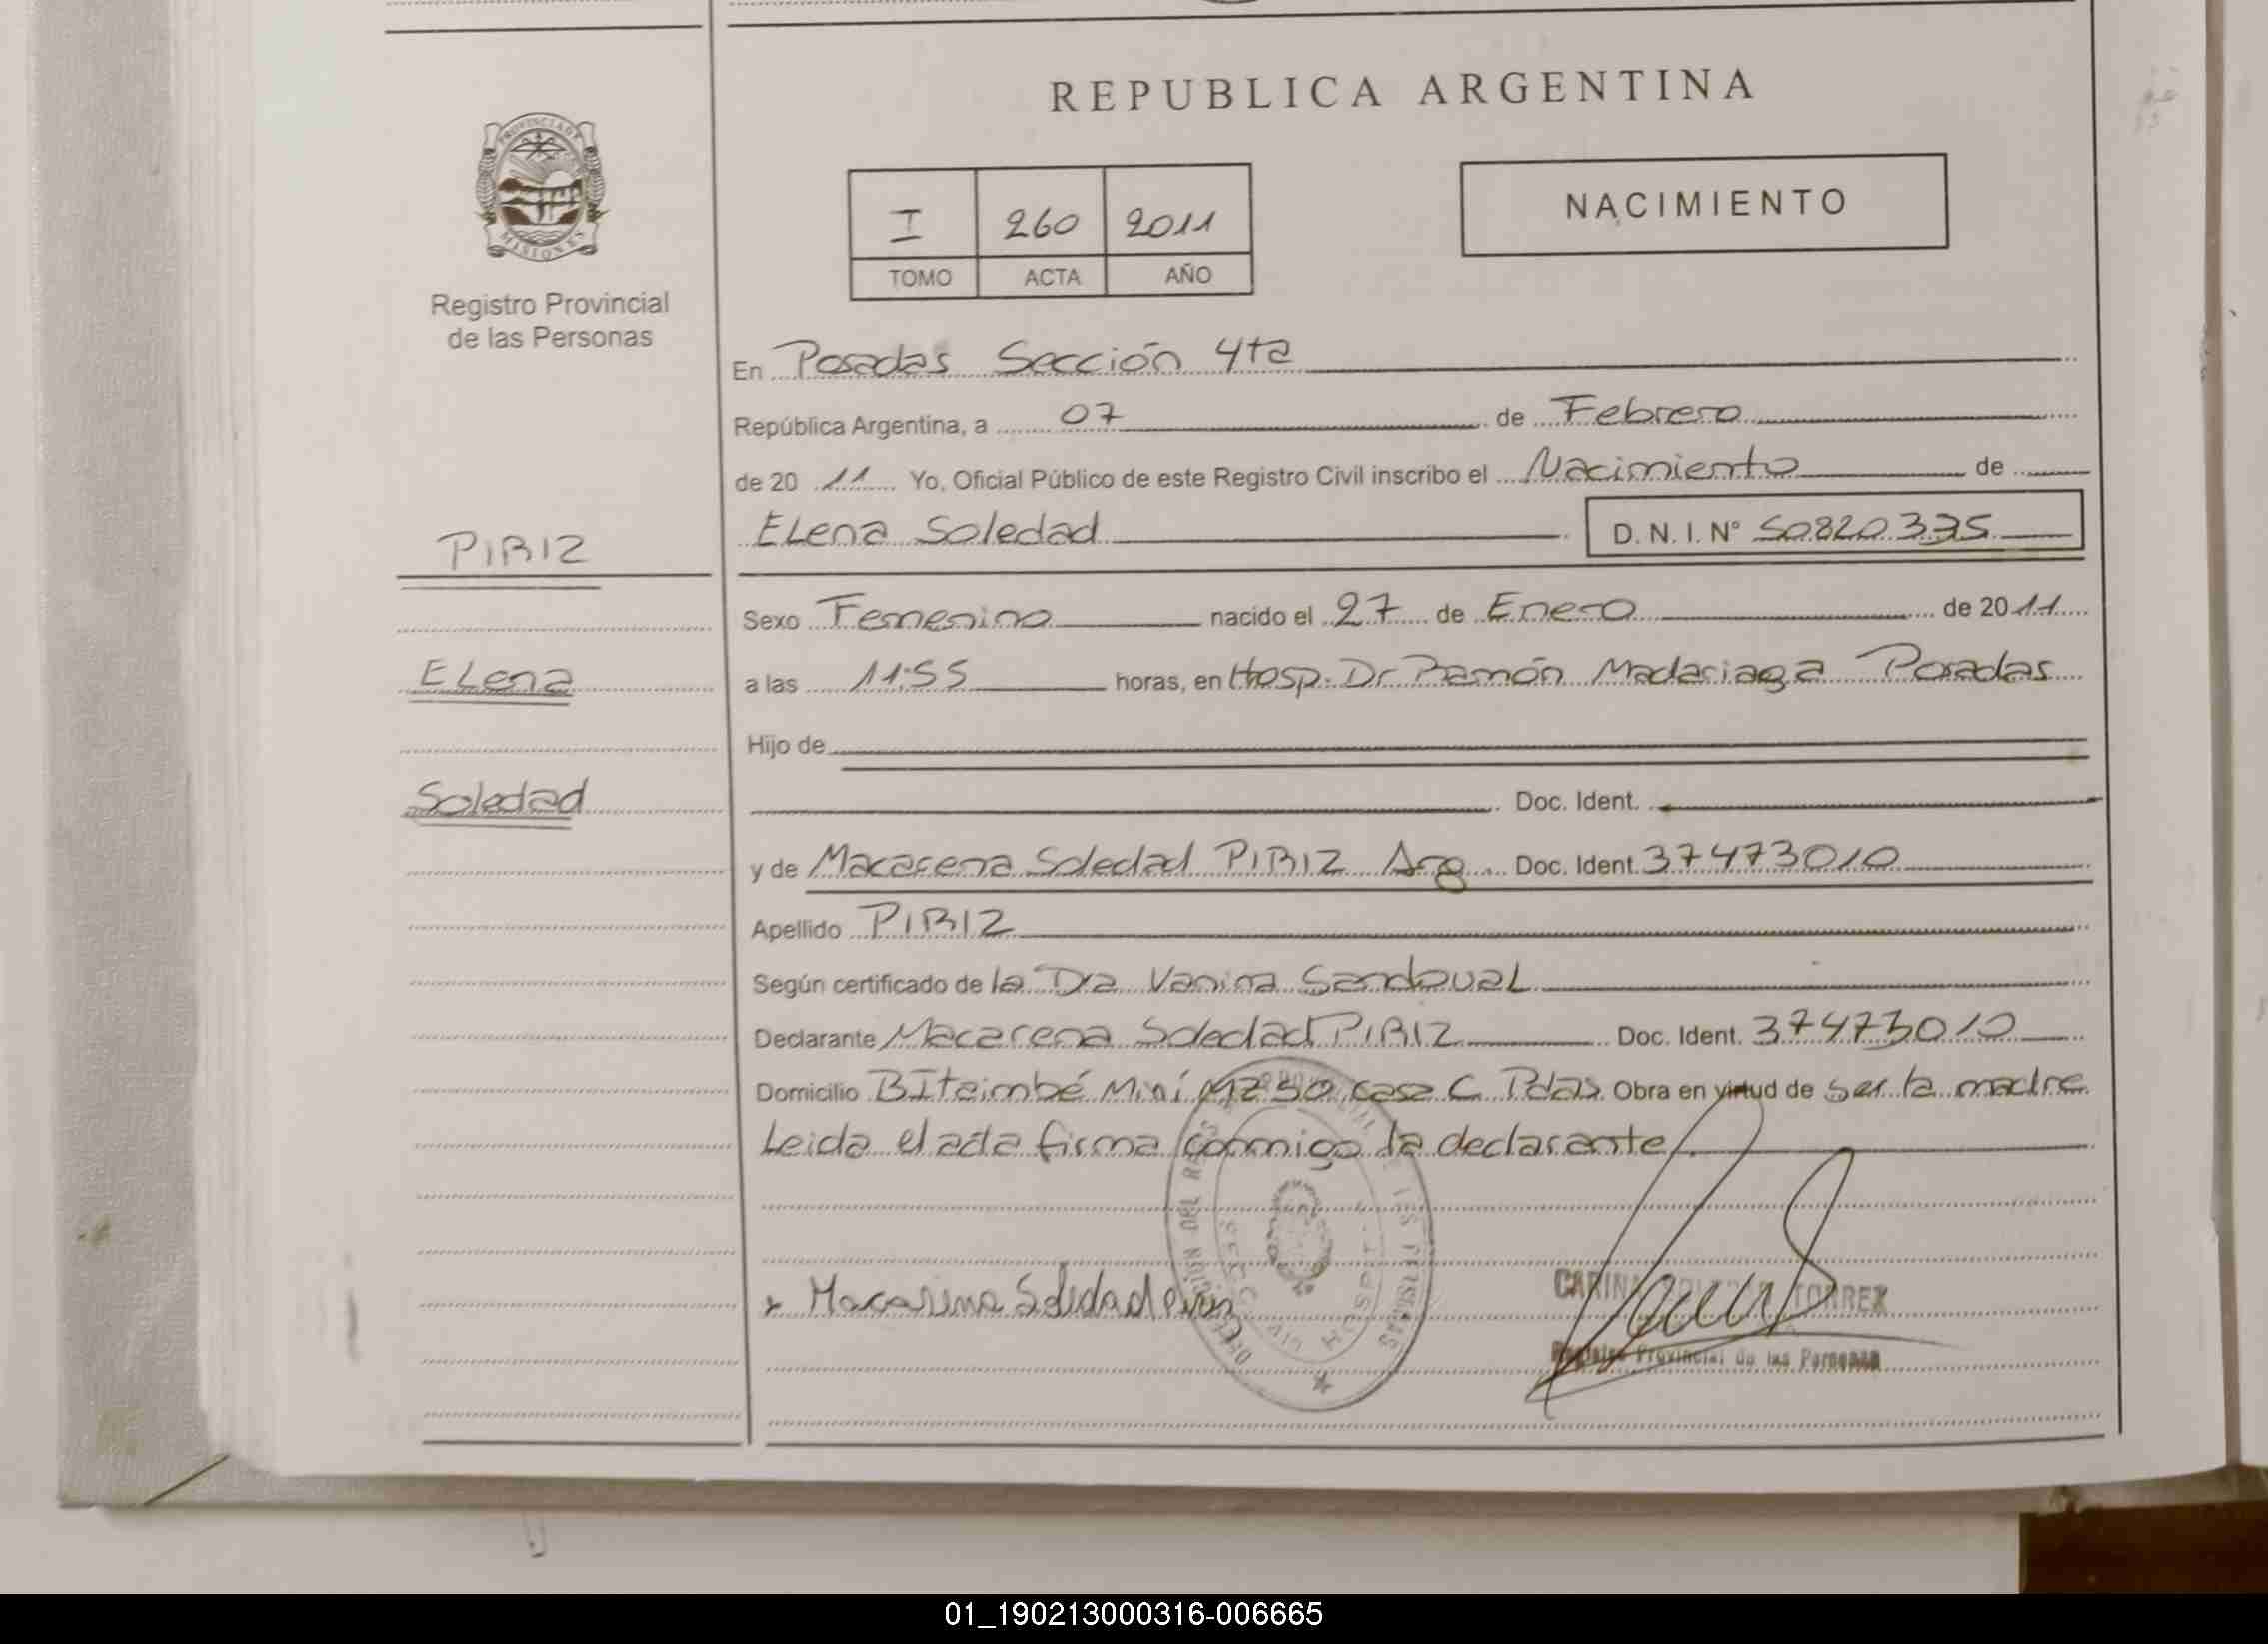 REPUBLICA ARGENTINA
PROVINCIA DE
MISIONES
Registro Provincial
de las Personas
I 260 2011
TOMO ACTA AÑO
NACIMIENTO
En Posadas Sección 4ta
República Argentina, a 07 de Febrero
de 20 11 Yo, Oficial Público de este Registro Civil inscribo el Nacimiento de
Elena Soledad D. N. I. N° 50820335
PIRIZ
Sexo Femenino nacido el 27 de Enero de 2011
Elena
a las 11:55 horas, en Hosp. Dr Ramón Madariaga Posadas
Hijo de
Soledad
Doc. Ident.
y de Macarena Soledad PIRIZ Arg Doc. Ident. 37473010
Apellido PIRIZ
Según certificado de la Dra Vanina Sandoval
Declarante Macarena Soledad PIRIZ Doc. Ident. 37473010
Domicilio B Itaimbé Miní MZ 50 casa C Pdas Obra en virtud de ser la madre
Leida el acta firma conmigo la declarante
Macarena Soledad
CARINA TORREX
Registro Provincial de las Personas
01_190213000316-006665